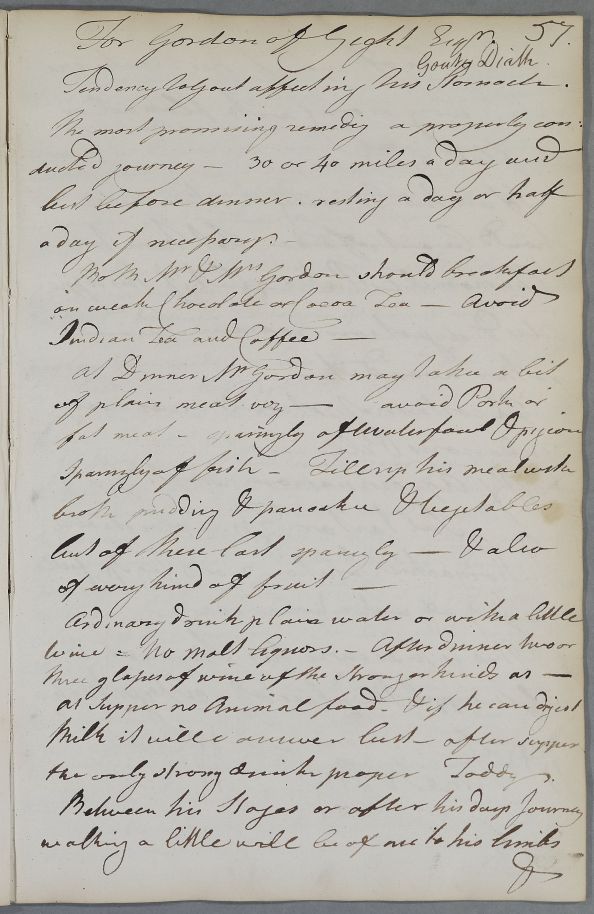 For Gordon of Gight Esqr. 57.
Gouty Diath.
Tendency to Gout affecting his Stomach.
The most promising remedy a properly con:
ducted journey — 30 or 40 miles a day and
best before dinner. resting a day or half
a day if necessary. —
Both Mr & Mrs Gordon should breakfast
on weak Chocolate or Cocoa Tea — Avoid
Indian Tea and Coffee —
At Dinner Mr Gordon may take a bit
of plain meat — avoid Pork or
fat meat — sparingly of waterfowl & pigeon
Sparingly of fish — Fill up his meal with
broth pudding & pancake & Vegetables
but of these last sparingly — & also
of every kind of fruit —
Ordinary drink plain water or with a little
wine = No malt liquors. — After dinner two or
three glasses of wine of the stronger kinds as —
At Supper no Animal food. & if he can digest
Milk it will answer best — after supper
the only strong drink proper Toddy.
Between his Stages or after his days Journey
walking a little will be of use to his limbs
&